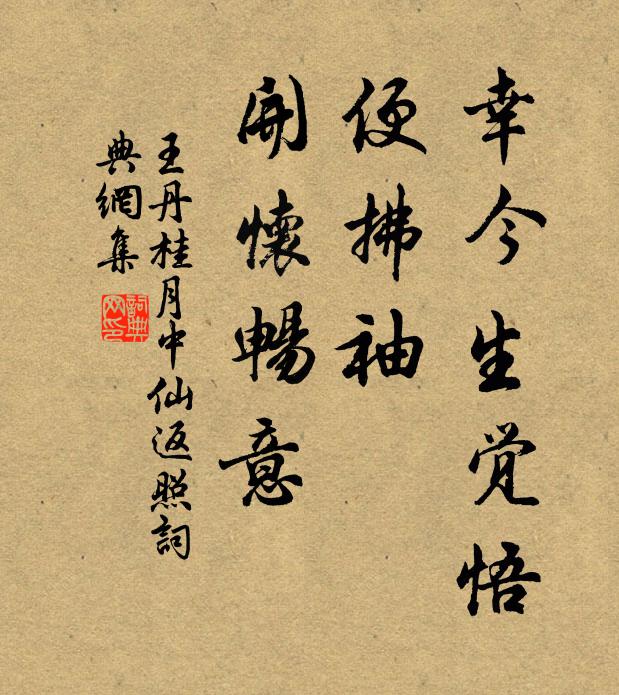 幸今生觉悟
便拂袖
開懷暢意
王丹桂月中仙返照詞
典網集
詞典网印